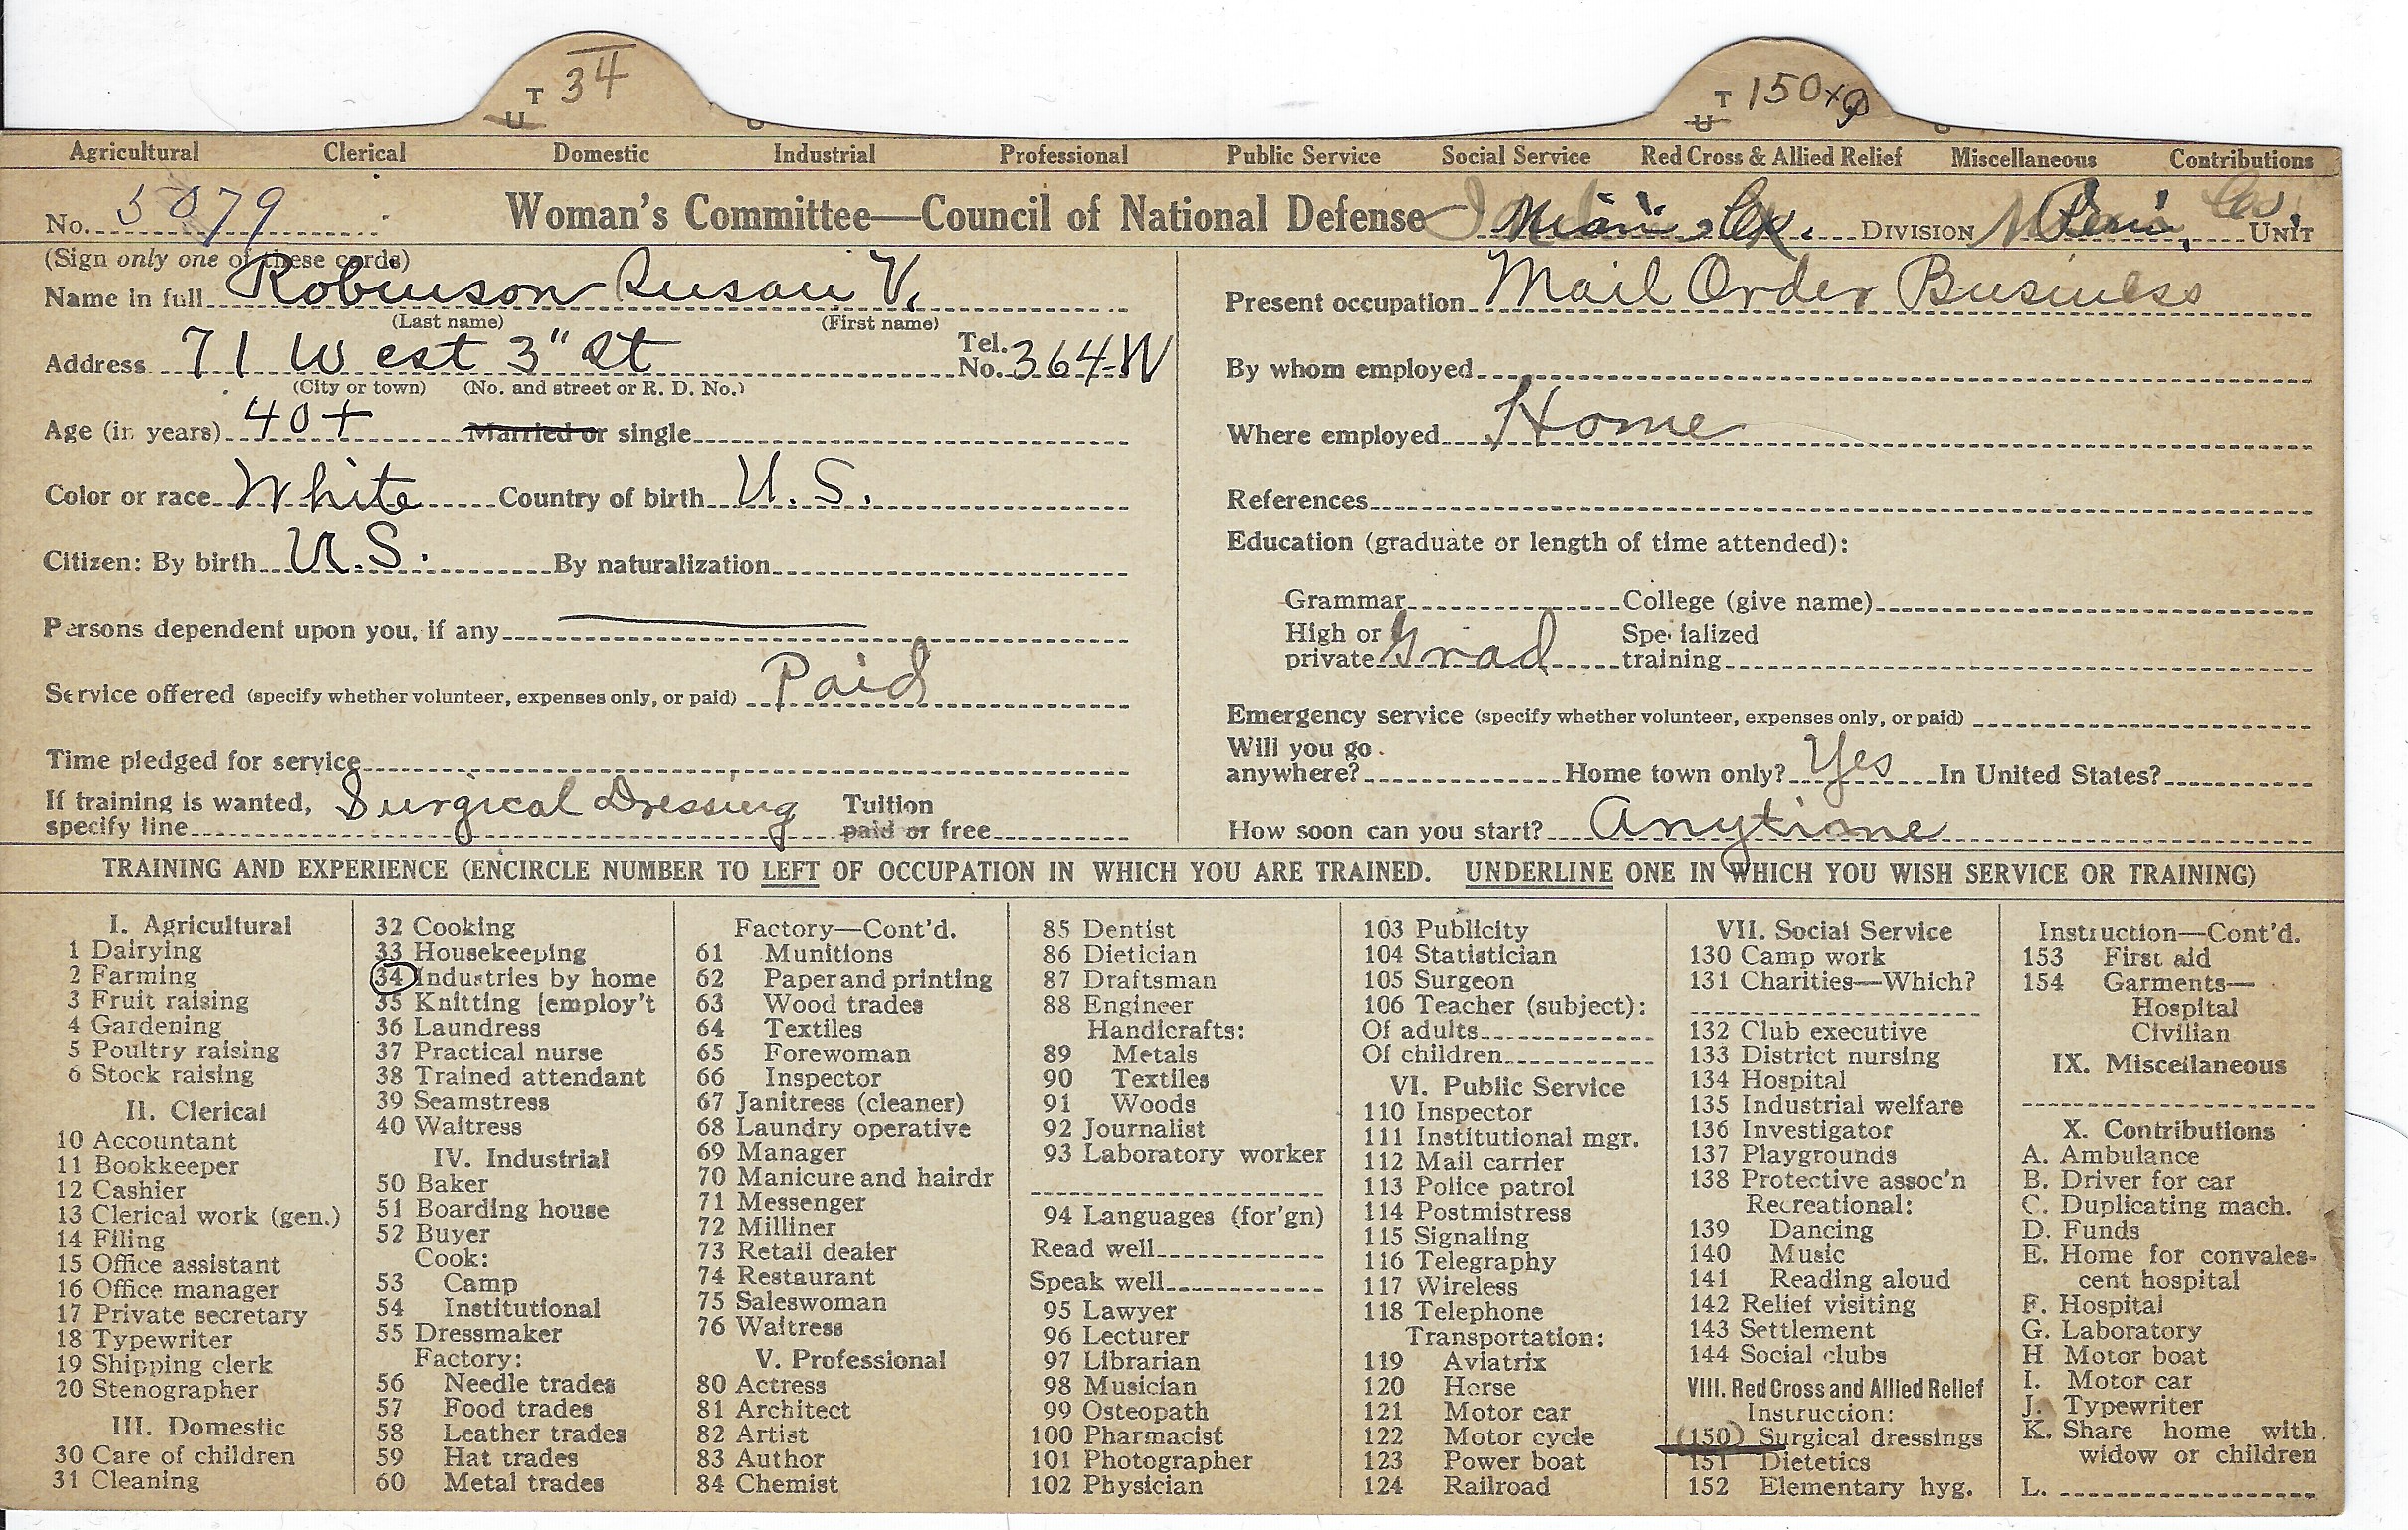 T 34
U
T 150
U
Agricultural Clerical Domestic Industrial Professional Public Service Social Service Red Cross & Allied Relief Miscellaneous Contributions
No. 5079 Woman's Committee—Council of National Defense DIVISION UNIT
(Sign only one of these cards)
Name in full Robinson Susan V.
(Last name) (First name)
Address 71 West 3" St Tel. No. 364-W
(City or town) (No. and street or R. D. No.)
Age (in years) 40+ Married or single
Color or race White Country of birth U.S.
Citizen: By birth U.S. By naturalization
Persons dependent upon you, if any
Service offered (specify whether volunteer, expenses only, or paid) Paid
Time pledged for service
If training is wanted, Surgical Dressing Tuition
specify line paid or free
Present occupation Mail Order Business
By whom employed
Where employed Home
References
Education (graduate or length of time attended):
Grammar College (give name)
High or Grad Specialized
private training
Emergency service (specify whether volunteer, expenses only, or paid)
Will you go
anywhere? Home town only? Yes In United States?
How soon can you start? Anytime
TRAINING AND EXPERIENCE (ENCIRCLE NUMBER TO LEFT OF OCCUPATION IN WHICH YOU ARE TRAINED. UNDERLINE ONE IN WHICH YOU WISH SERVICE OR TRAINING)
I. Agricultural
1 Dairying
2 Farming
3 Fruit raising
4 Gardening
5 Poultry raising
6 Stock raising
II. Clerical
10 Accountant
11 Bookkeeper
12 Cashier
13 Clerical work (gen.)
14 Filing
15 Office assistant
16 Office manager
17 Private secretary
18 Typewriter
19 Shipping clerk
20 Stenographer
III. Domestic
30 Care of children
31 Cleaning
32 Cooking
33 Housekeeping
34 Industries by home
35 Knitting [employ't
36 Laundress
37 Practical nurse
38 Trained attendant
39 Seamstress
40 Waitress
IV. Industrial
50 Baker
51 Boarding house
52 Buyer
Cook:
53 Camp
54 Institutional
55 Dressmaker
Factory:
56 Needle trades
57 Food trades
58 Leather trades
59 Hat trades
60 Metal trades
Factory—Cont'd.
61 Munitions
62 Paper and printing
63 Wood trades
64 Textiles
65 Forewoman
66 Inspector
67 Janitress (cleaner)
68 Laundry operative
69 Manager
70 Manicure and hairdr
71 Messenger
72 Milliner
73 Retail dealer
74 Restaurant
75 Saleswoman
76 Waitress
V. Professional
80 Actress
81 Architect
82 Artist
83 Author
84 Chemist
85 Dentist
86 Dietician
87 Draftsman
88 Engineer
Handicrafts:
89 Metals
90 Textiles
91 Woods
92 Journalist
93 Laboratory worker
94 Languages (for'gn)
Read well
Speak well
95 Lawyer
96 Lecturer
97 Librarian
98 Musician
99 Osteopath
100 Pharmacist
101 Photographer
102 Physician
103 Publicity
104 Statistician
105 Surgeon
106 Teacher (subject):
Of adults
Of children
VI. Public Service
110 Inspector
111 Institutional mgr.
112 Mail carrier
113 Police patrol
114 Postmistress
115 Signaling
116 Telegraphy
117 Wireless
118 Telephone
Transportation:
119 Aviatrix
120 Horse
121 Motor car
122 Motor cycle
123 Power boat
124 Railroad
VII. Social Service
130 Camp work
131 Charities—Which?
132 Club executive
133 District nursing
134 Hospital
135 Industrial welfare
136 Investigator
137 Playgrounds
138 Protective assoc'n
Recreational:
139 Dancing
140 Music
141 Reading aloud
142 Relief visiting
143 Settlement
144 Social clubs
VIII. Red Cross and Allied Relief
Instruction:
150 Surgical dressings
151 Dietetics
152 Elementary hyg.
Instruction—Cont'd.
153 First aid
154 Garments—
Hospital
Civilian
IX. Miscellaneous
X. Contributions
A. Ambulance
B. Driver for car
C. Duplicating mach.
D. Funds
E. Home for convales-
cent hospital
F. Hospital
G. Laboratory
H Motor boat
I. Motor car
J. Typewriter
K. Share home with
widow or children
L.